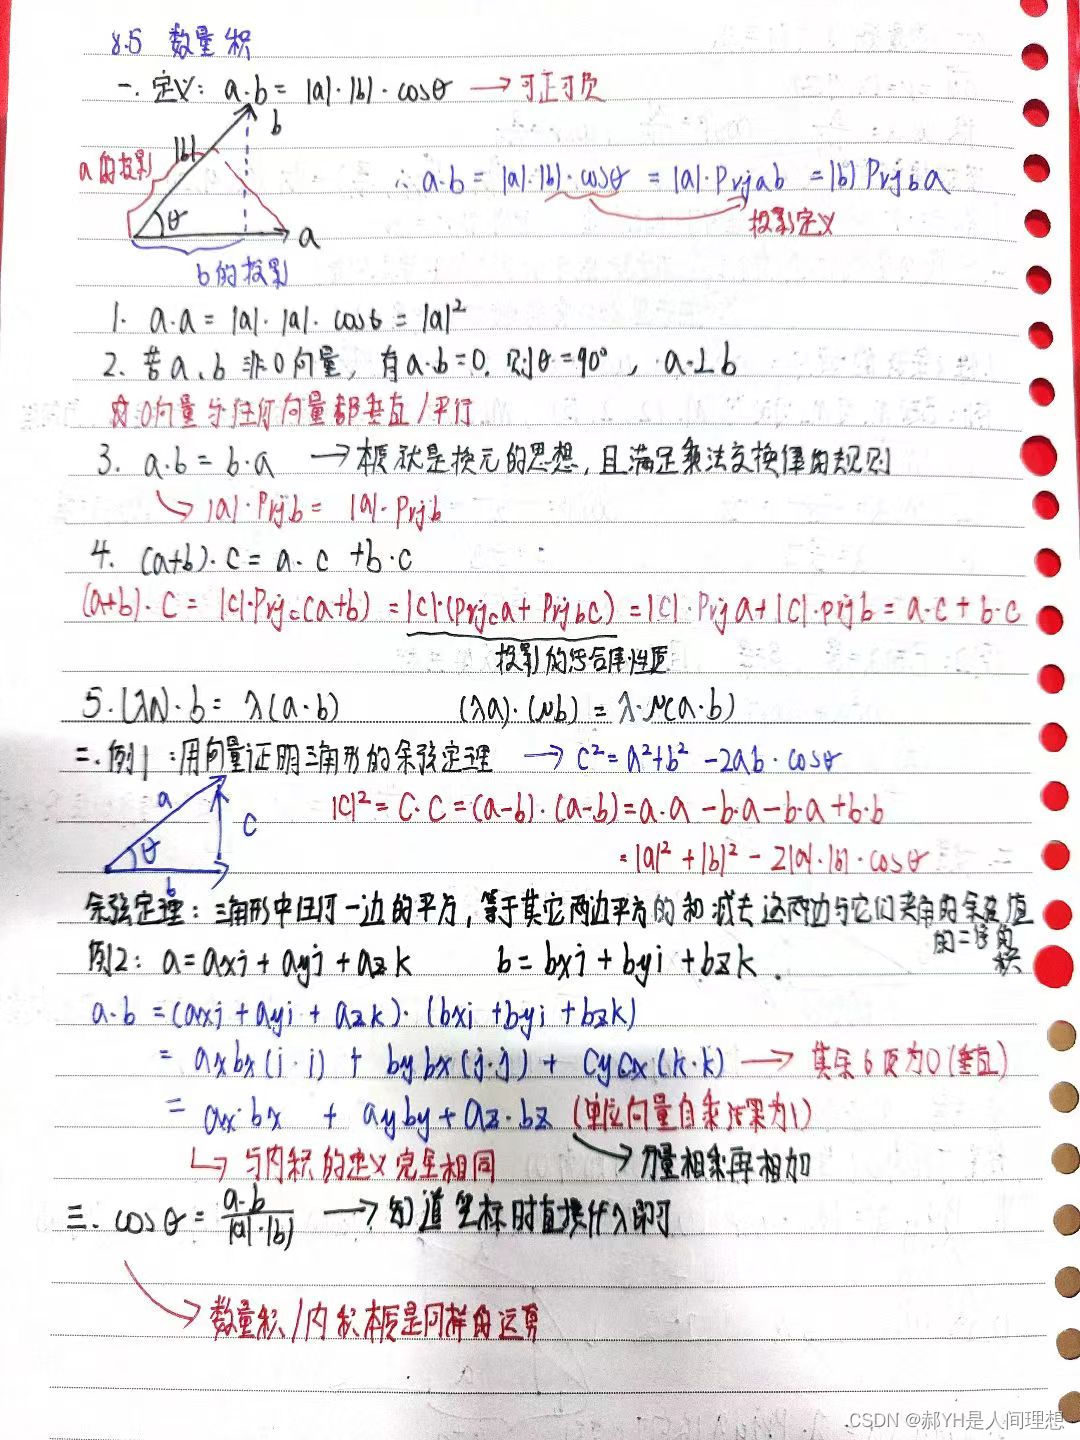 8.5 数量积
一. 定义: a·b = |a|·|b|·cosθ → 可正可负
b
|b|
a的投影
∴ a·b = |a|·|b|·cosθ = |a|·Prjab = |b|Prjba
θ
投影定义
a
b的投影
1. a·a = |a|·|a|·cosθ = |a|²
2. 若a、b非0向量, 有a·b=0, 则θ=90°, a⊥b
0向量与任何向量都垂直/平行
3. a·b = b·a → 本质就是换元的思想, 且满足乘法交换律的规则
↳ |a|·Prjb = |a|·Prjb
4. (a+b)·c = a·c + b·c
(a+b)·c = |c|·Prjc(a+b) = |c|·(Prjca + Prjbc) = |c|·Prja + |c|·Prjb = a·c + b·c
投影的 性质
5. (λa)·b = λ(a·b) (λa)·(μb) = λ·μ(a·b)
二. 例1: 用向量证明三角形的余弦定理 → c² = a²+b² -2ab·cosθ
a
|c|² = c·c = (a-b)·(a-b) = a·a - b·a - b·a + b·b
c
θ
= |a|² + |b|² - 2|a|·|b|·cosθ
b
余弦定理: 三角形中任何一边的平方, 等于其它两边平方的和减去这两边与它们夹角的余弦值
的二倍的
积
例2: a = axi + ayj + azk b = bxi + byj + bzk.
a·b = (axi + ayj + azk)·(bxi + byj + bzk)
= axbx(i·i) + bybx(j·j) + cycx(k·k) → 其余6项为0(垂直)
= ax·bx + ayby + az·bz (单位向量自乘结果为1)
↳ 与内积的定义完全相同 → 分量相乘再相加
三. cosθ = a·b / |a|·|b| → 知道坐标时直接代入即可
数量积/内积本质是同样的运算
CSDN @郝YH是人间理想